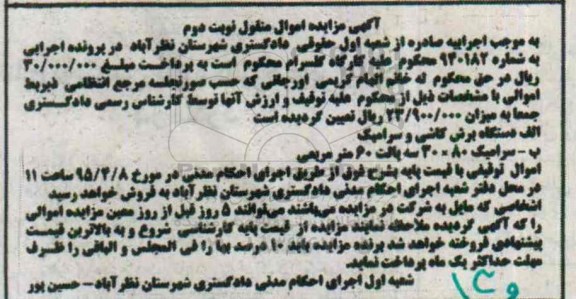 آگهی مزایده اموال منقول نوبت دوم
به موجب اجرائیه صادره از شعبه اول حقوقی دادگستری شهرستان نظرآباد در پرونده اجرایی
به شماره ۹۳۰۱۸۲ محکوم علیه کارگاه گلسرام محکوم است به پرداخت مبلغ ۳۰/۰۰۰/۰۰۰
ریال در حق محکوم له خانم الهام کریمی اورجانی که حسب صورتجلسه مرجع انتظامی ذیربط
اموالی با مشخصات ذیل از محکوم علیه توقیف و ارزش آنها توسط کارشناس رسمی دادگستری
جمعا به میزان ۲۳/۹۰۰/۰۰۰ ریال تعیین گردیده است
الف دستگاه برش کاشی و سرامیک
ب - سرامیک ۸۰ × ۳۰ سه پالت ۶۰ متر مربعی
اموال توقیفی با قیمت پایه بشرح فوق از طریق اجرای احکام مدنی در مورخ ۹۵/۳/۸ ساعت ۱۱
در محل دفتر شعبه اجرای احکام مدنی دادگستری شهرستان نظرآباد به فروش خواهد رسید
اشخاصی که مایل به شرکت در مزایده می‌باشند می‌توانند ۵ روز قبل از روز معین مزایده اموالی
را که آگهی گردیده ملاحظه نمایند مزایده از قیمت پایه کارشناسی شروع و به بالاترین قیمت
پیشنهادی فروخته خواهد شد برنده مزایده باید ۱۰ درصد بها را فی المجلس و الباقی را ظرف
مهلت حداکثر یک ماه پرداخت نماید.
شعبه اول اجرای احکام مدنی دادگستری شهرستان نظرآباد - حسین پور